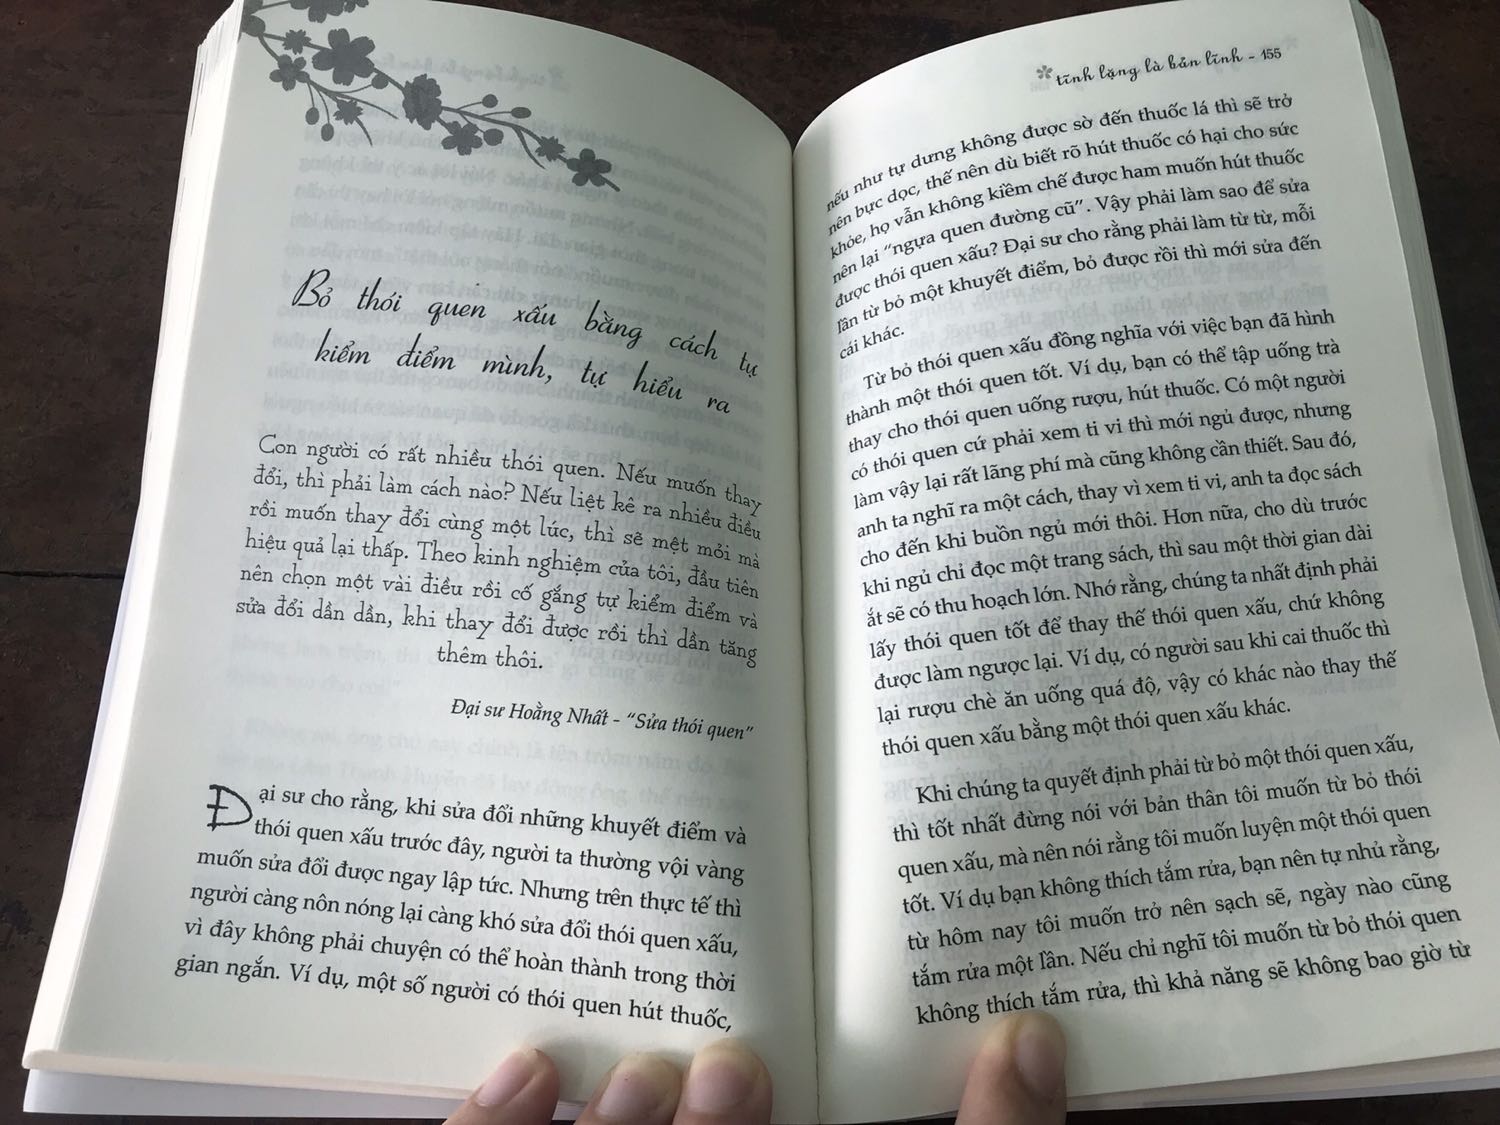 Bỏ thói quen xấu bằng cách tự
kiểm điểm mình, tự hiểu ra
Con người có rất nhiều thói quen. Nếu muốn thay
đổi, thì phải làm cách nào? Nếu liệt kê ra nhiều điều
rồi muốn thay đổi cùng một lúc, thì sẽ mệt mỏi mà
hiệu quả lại thấp. Theo kinh nghiệm của tôi, đầu tiên
nên chọn một vài điều rồi cố gắng tự kiểm điểm và
sửa đổi dần dần, khi thay đổi được rồi thì dần tăng
thêm thôi.
Đại sư Hoằng Nhất - "Sửa thói quen"
Đại sư cho rằng, khi sửa đổi những khuyết điểm và
thói quen xấu trước đây, người ta thường vội vàng
muốn sửa đổi được ngay lập tức. Nhưng trên thực tế thì
người càng nôn nóng lại càng khó sửa đổi thói quen xấu,
vì đây không phải chuyện có thể hoàn thành trong thời
gian ngắn. Ví dụ, một số người có thói quen hút thuốc,
tĩnh lặng là bản lĩnh - 155
nếu như tự dưng không được sờ đến thuốc lá thì sẽ trở
nên bực dọc, thế nên dù biết rõ hút thuốc có hại cho sức
khỏe, họ vẫn không kiềm chế được ham muốn hút thuốc
nên lại "ngựa quen đường cũ". Vậy phải làm sao để sửa
được thói quen xấu? Đại sư cho rằng phải làm từ từ, mỗi
lần từ bỏ một khuyết điểm, bỏ được rồi thì mới sửa đến
cái khác.
Từ bỏ thói quen xấu đồng nghĩa với việc bạn đã hình
thành một thói quen tốt. Ví dụ, bạn có thể tập uống trà
thay cho thói quen uống rượu, hút thuốc. Có một người
có thói quen cứ phải xem ti vi thì mới ngủ được, nhưng
làm vậy lại rất lãng phí mà cũng không cần thiết. Sau đó,
anh ta nghĩ ra một cách, thay vì xem ti vi, anh ta đọc sách
cho đến khi buồn ngủ mới thôi. Hơn nữa, cho dù trước
khi ngủ chỉ đọc một trang sách, thì sau một thời gian dài
ắt sẽ có thu hoạch lớn. Nhớ rằng, chúng ta nhất định phải
lấy thói quen tốt để thay thế thói quen xấu, chứ không
được làm ngược lại. Ví dụ, có người sau khi cai thuốc thì
lại rượu chè ăn uống quá độ, vậy có khác nào thay thế
thói quen xấu bằng một thói quen xấu khác.
Khi chúng ta quyết định phải từ bỏ một thói quen xấu,
thì tốt nhất đừng nói với bản thân tôi muốn từ bỏ thói
quen xấu, mà nên nói rằng tôi muốn luyện một thói quen
tốt. Ví dụ bạn không thích tắm rửa, bạn nên tự nhủ rằng,
từ hôm nay tôi muốn trở nên sạch sẽ, ngày nào cũng
tắm rửa một lần. Nếu chỉ nghĩ tôi muốn từ bỏ thói quen
không thích tắm rửa, thì khả năng sẽ không bao giờ từ